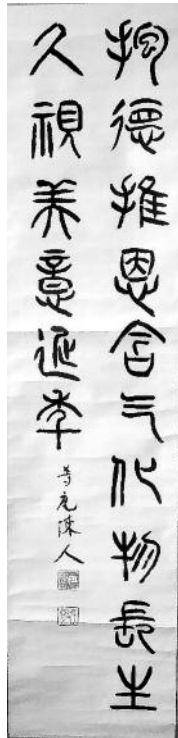 抱德推恩含气化物長生
久視美意延年
陳人